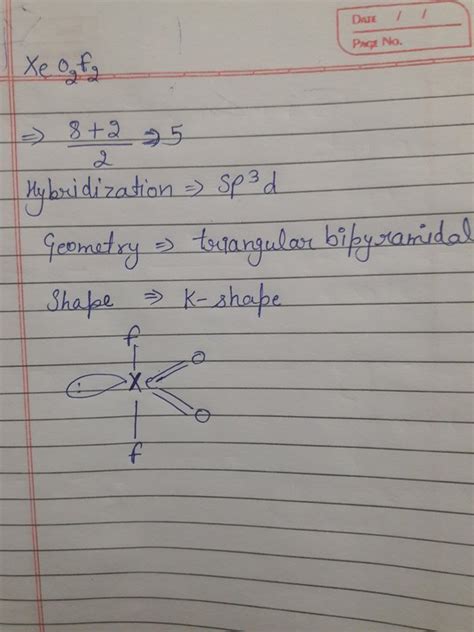 DATE / /
PAGE NO.
XeO₂f₂
⇒ 8+2/2 ⇒ 5
Hybridization ⇒ SP³d
Geometry ⇒ triangular bipyramidal
Shape ⇒ K-shape
f
O
: Xe
O
f